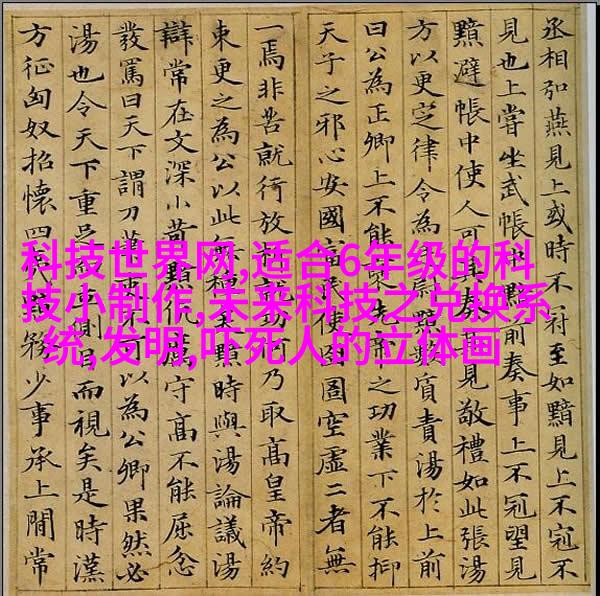 科技世界网,适合6年级的科
技小制作,未来科技之兑换系
统,发明,吓死人的立体画
丞相弘燕見上或時不冠至如黯見上不冠不
見也上嘗坐武帳黯前奏事上不冠望見
黯避帳中使人可其奏見敬禮如此張湯
方以更定律令為尉黯數質責湯於上前
曰公為正卿上不能先帝之功業下不能抑
天子之邪心安國富民使囹圄空虛二者無
一焉非苦就行放就功乃取高皇帝約
束更之為公以此無種矣黯時與湯論議湯
辯常在文深小苛黯厲守高不能屈忿
發罵曰天下謂刀可以為公卿果然必
湯也令天下重足側目而視矣是時漢
方征匈奴招懷四務少事承上間常